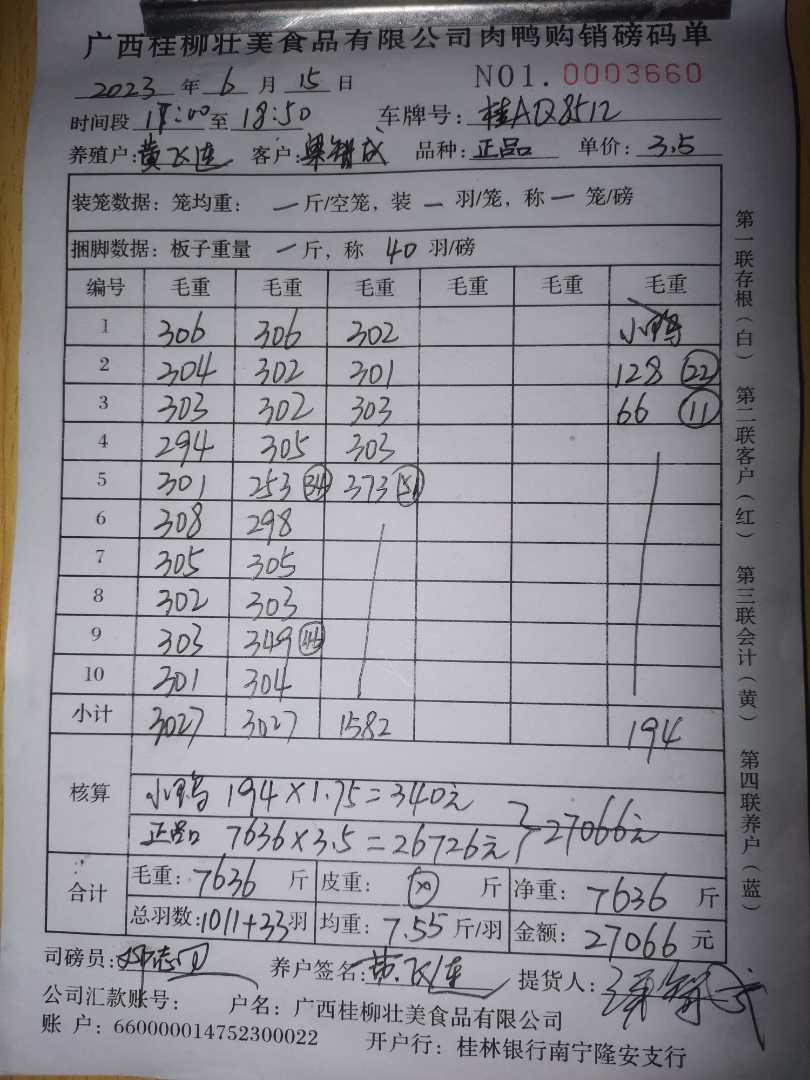 广西桂柳壮美食品有限公司肉鸭购销磅码单
2023 年 6 月 15 日 NO1. 0003660
时间段 17:00 至 18:50 车牌号: 桂AQ8512
养殖户: 黄飞连 客户: 品种: 正品 单价: 3.5
装笼数据: 笼均重: 一 斤/空笼, 装 一 羽/笼, 称 一 笼/磅
捆脚数据: 板子重量 一 斤, 称 40 羽/磅
编号 毛重 毛重 毛重 毛重 毛重 毛重
1 306 306 302 小鸭
2 304 302 301 128 22
3 303 302 303 66 11
4 294 305 303
5 301 253 34 373 51
6 308 298
7 305 305
8 302 303
9 303 349 46
10 301 304
小计 3027 3027 1582 194
核算
小鸭 194×1.75=340元
正品 7636×3.5=26726元 } 27066元
合计 毛重: 7636 斤 皮重: 斤 净重: 7636 斤
总羽数: 1011+33 羽 均重: 7.55 斤/羽 金额: 27066 元
司磅员: 养户签名: 黄飞连 提货人:
公司汇款账号: 户名: 广西桂柳壮美食品有限公司
账 户: 660000014752300022 开户行: 桂林银行南宁隆安支行
第一联存根(白) 第二联客户(红) 第三联会计(黄) 第四联养户(蓝)